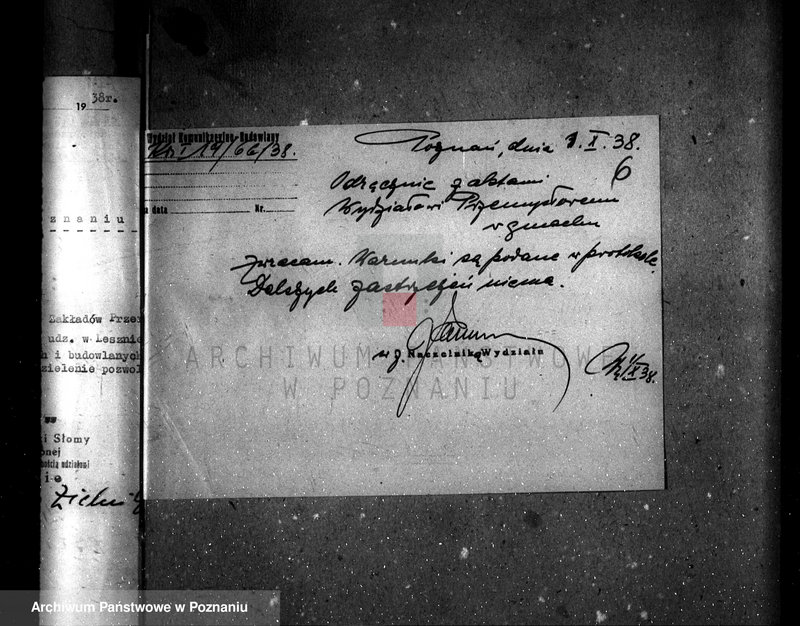 1938r.
znaniu
Zakładów Prze
udz. w Leszni
h i budowlanych
zielenie pozwol
i Słomy
onej
i e
Wydział Komunikacyjno-Budowlany
19/66/38.
Poznań, dnia 1.X.38.
6
Odręcznie z aktami
Wydziałowi Przemysłowemu
w gmachu
zwracam. Warunki są podane w protokole.
Dalszych zastrzeżeń niema.
a data Nr.
w z. Naczelnika Wydziału
1/X 38.
ARCHIWUM PAŃSTWOWE
W POZNANIU
Archiwum Państwowe w Poznaniu